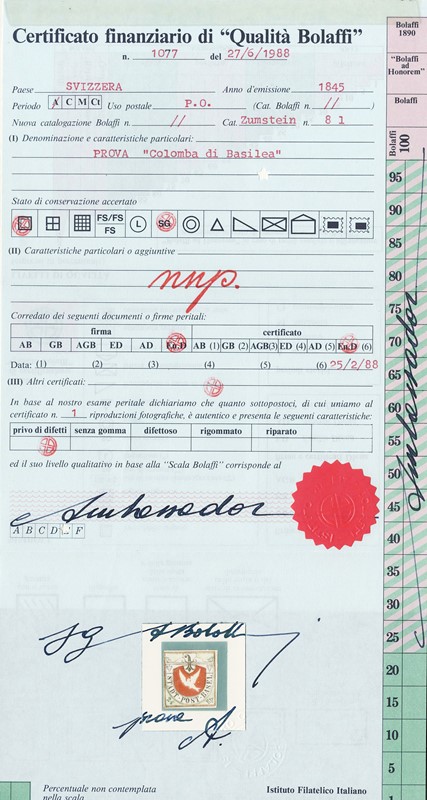 Certificato finanziario di “Qualità Bolaffi”
n. 1077 del 27/6/1988
Paese SVIZZERA Anno d'emissione 1845
Periodo A C M Ct Uso postale P.O. (Cat. Bolaffi n. // )
Nuova catalogazione Bolaffi n. // Cat. Zumstein n. 8 1
(I) Denominazione e caratteristiche particolari:
PROVA "Colomba di Basilea"
Stato di conservazione accertato
FS/FS FS L SG
(II) Caratteristiche particolari o aggiuntive
nnp.
Corredato dei seguenti documenti o firme peritali:
firma certificato
AB GB AGB ED AD En.D AB (1) GB (2) AGB(3) ED (4) AD (5) En.D (6)
Data: (1) (2) (3) (4) (5) (6) 25/2/88
(III) Altri certificati:
In base al nostro esame peritale dichiariamo che quanto sottopostoci, di cui uniamo al
certificato n. 1 riproduzioni fotografiche, è autentico e presenta le seguenti caratteristiche:
privo di difetti senza gomma difettoso rigommato riparato
ed il suo livello qualitativo in base alla “Scala Bolaffi” corrisponde al
Ambassador
A B C D E F
SG A Bolaffi
STADT POST BASEL
prova A.
Percentuale non contemplata
nella scala
Istituto Filatelico Italiano
Bolaffi
1890
“Bolaffi
ad
Honorem”
Bolaffi
Bolaffi 100
95
90
85
80
75
70
65
60
55
50
45
40
35
30
25
20
15
10
5
1
Ambassador